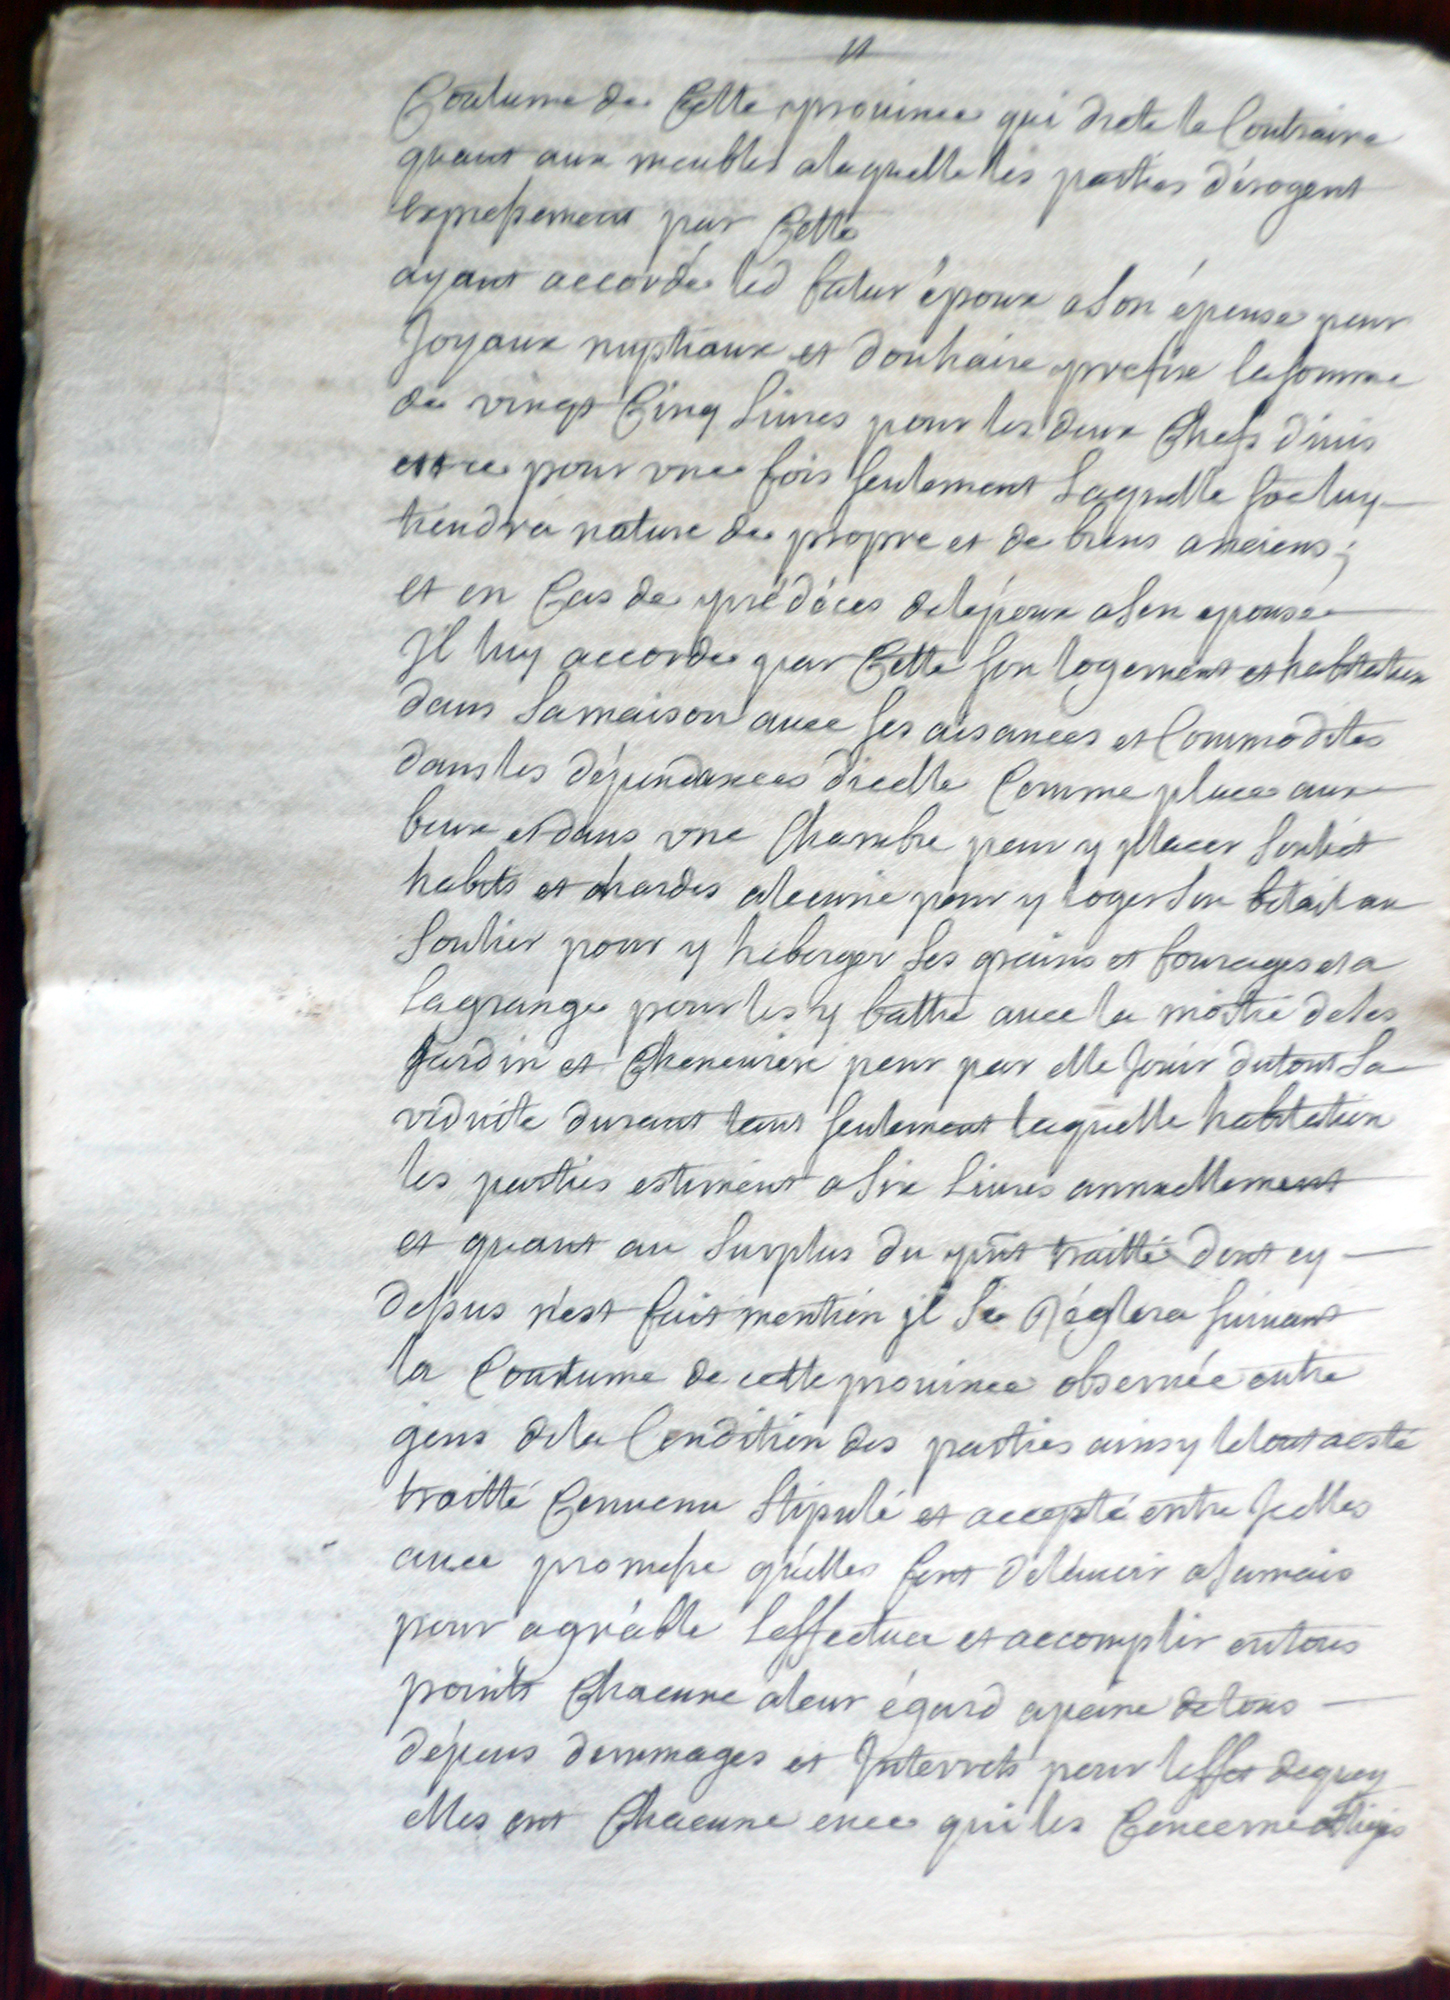 11
Coutume de Cette prouince qui dicte le Contraire
quant aux meubles alaquelle les parties dérogent
expressement par Cette
ayant accordé led futur époux a son épouse pour
Joyaux nuptiaux et doühaire prefixe la somme
de vingt Cinq Liures pour les deux Chefs diuis
et ce pour vne fois seulement Laquelle soe luy
tiendra nature de propre et de biens anciens ;
et en Cas de prédéces delépoux a son epouse
Jl luy accorde par Cette son logement et habitation
dans Samaison auec ses aisances et Commodites
dans les dépendances dicelle Comme place aux
feux et dans vne Chambre pour y placer Sonlict
habits et hardes alecurie pour y loger Son bétail au
Soulier pour y heberger Ses grains et fourages et a
Lagrange pour les y battre auec la moitié de les
Jardin et Cheneuiere pour par elle Jouir dutout Sa
viduité durant tant seulement laquelle habitation
les parties estiment a Six Liures annuellement
et quant au Surplus du pnt traitté dont cy
dessus n'est fait mention jl Se Réglera suiuant
la Coutume de cette prouince obseruée entre
gens dela Condition des parties ainsy letout a esté
traitté Conuenu Stipulé et accepté entre Jcelles
auec promesse qu'elles font deleauoir a Jamais
pour agréable Leffectuer et accomplir entous
points Chacune aleur égard apeine detous
dépens dommages et Jnterrets pour leffet dequoy
elles ont Chacune ence qui les Concerne obligés